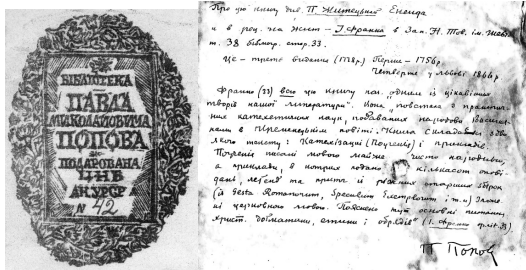 БІБЛІОТЕКА
ПАВЛА
МИКОЛАЙОВИЧА
ПОПОВА
ПОДАРОВАНА
ЦНБ
АН УРСР
N 42
Про цю книгу див. П. Житецького Енеида
і в рец. на Жит – І. Франка в Зап. Н. Тов. ім. Шевч.
т. 38 бібліогр. стор. 33.
Це – третє видання (1788р.) Перше – 1756р.
Четверте у Львові 1844р.
Франко (33) всю цю книгу наз. "одним із цікавіших
творів нашої літератури". Вона, повстала з
катехитичних наук, подаваних народови
в Кременецькім повіті. Книга складана з
якого тексту: Катехізації (Поученія) і прикладів.
Поученія писані мовою майже чисто народньою,
а приклади, в котрих подано кількасот опові-
дань, легенд та притч із ріжних старших збірок
(із Gesta Romanorum, Speculum Exemplorum і т. и.)
ні церковною мовою. Пояснено тут основні питання
христ. догматики, етики і обрядів" (І. Франко 33)
П Попов